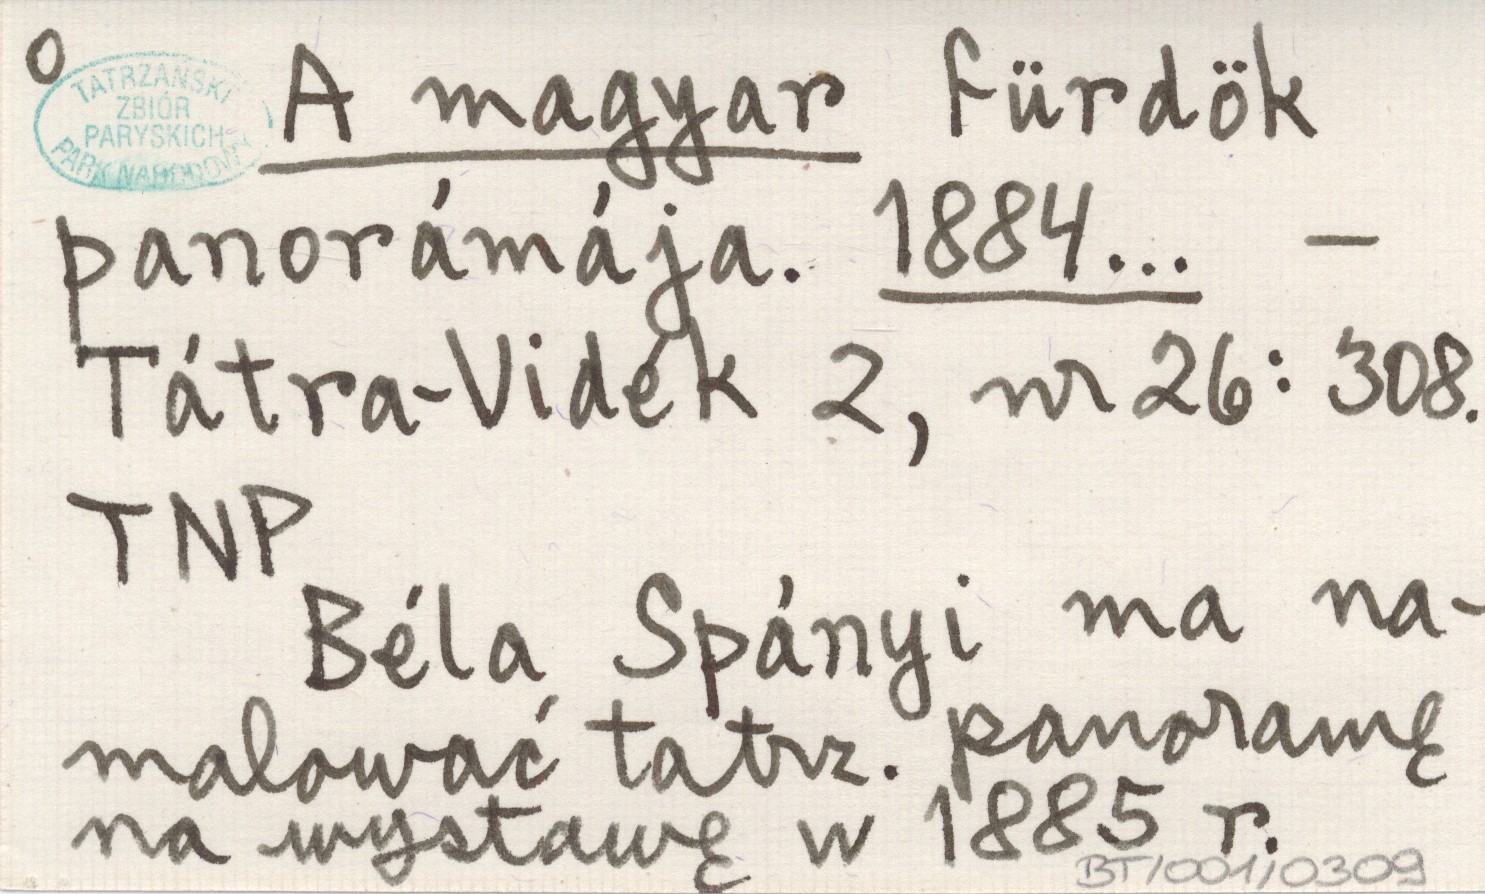 O
TATRZAŃSKI
ZBIÓR
PARYSKICH
PARK NARODOWY
A magyar fürdök
panorámája. 1884... –
Tátra-Vidék 2, nr 26: 308.
TNP
Béla Spányi ma na-
malować tatrz. panoramę
na wystawę w 1885 r.
BT/001/0309